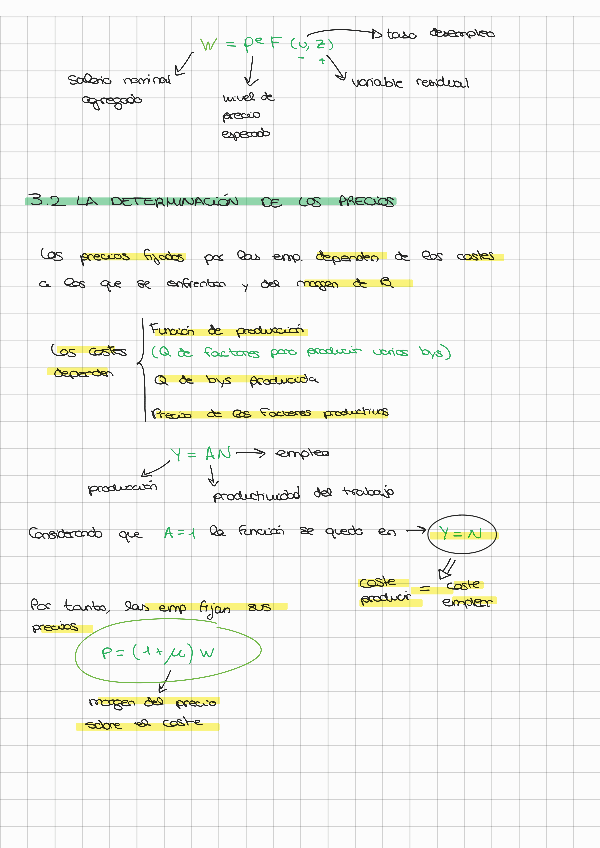 W = Pe F (u, z) → tasa desempleo
- +
salario nominal
agregado
nivel de
precio
esperado
variable residual
3.2 LA DETERMINACIÓN DE LOS PRECIOS
Los precios fijados por las emp. dependen de los costes
a los que se enfrentan y del margen de B
Los costes
dependen
Función de producción
(Q de factores para producir varios bys)
Q de bys producida
Precio de los factores productivos
Y = AN → empleo
producción
productividad del trabajo
Considerando que A=1 la función se queda en → Y=N
coste = coste
producir emplear
Por tanto, las emp fijan sus
precios
P = (1+μ) W
margen del precio
sobre el coste